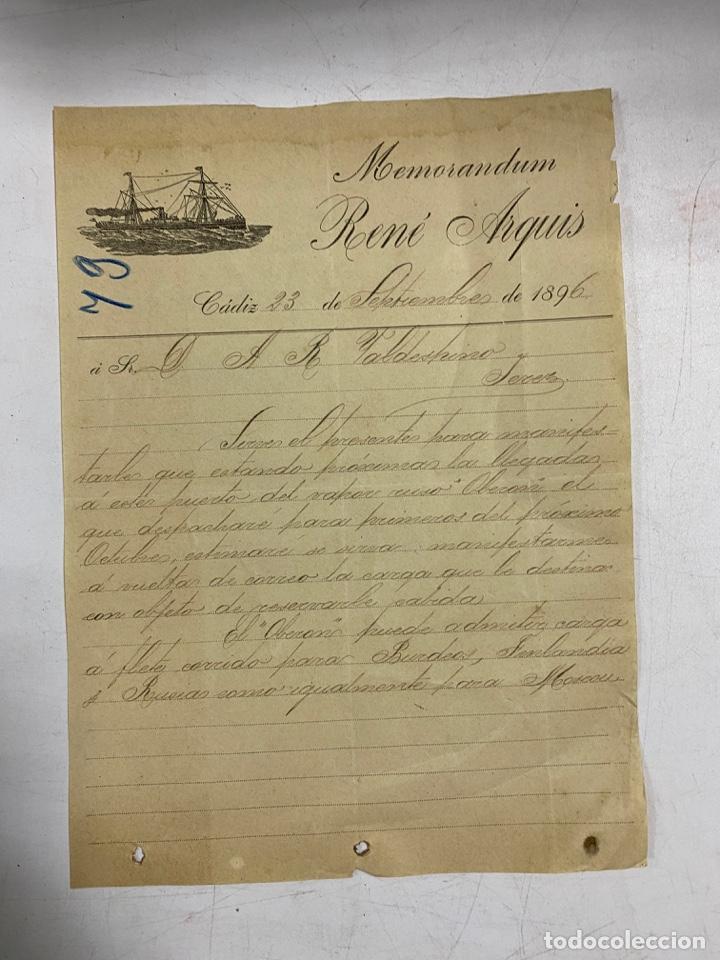 Memorandum
René Arquis
79
Cádiz 23 de Septiembre de 1896
á Sr. D A R Valdespino
Jerez
Sirve el presente para manifes-
tarle que estando próxima la llegada
á este puerto del vapor ruso "Oberon" el
que despachare para primeros del próximo
Octubre, estimare se sirva manifestarme
á vuelta de correo la carga que le destina
con objeto de reservarle cabida
El "Oberon" puede admitir carga
á flete corrido para Burdeos, Finlandia
y Rusia como igualmente para Moscou
todocoleccion
todocoleccion.net